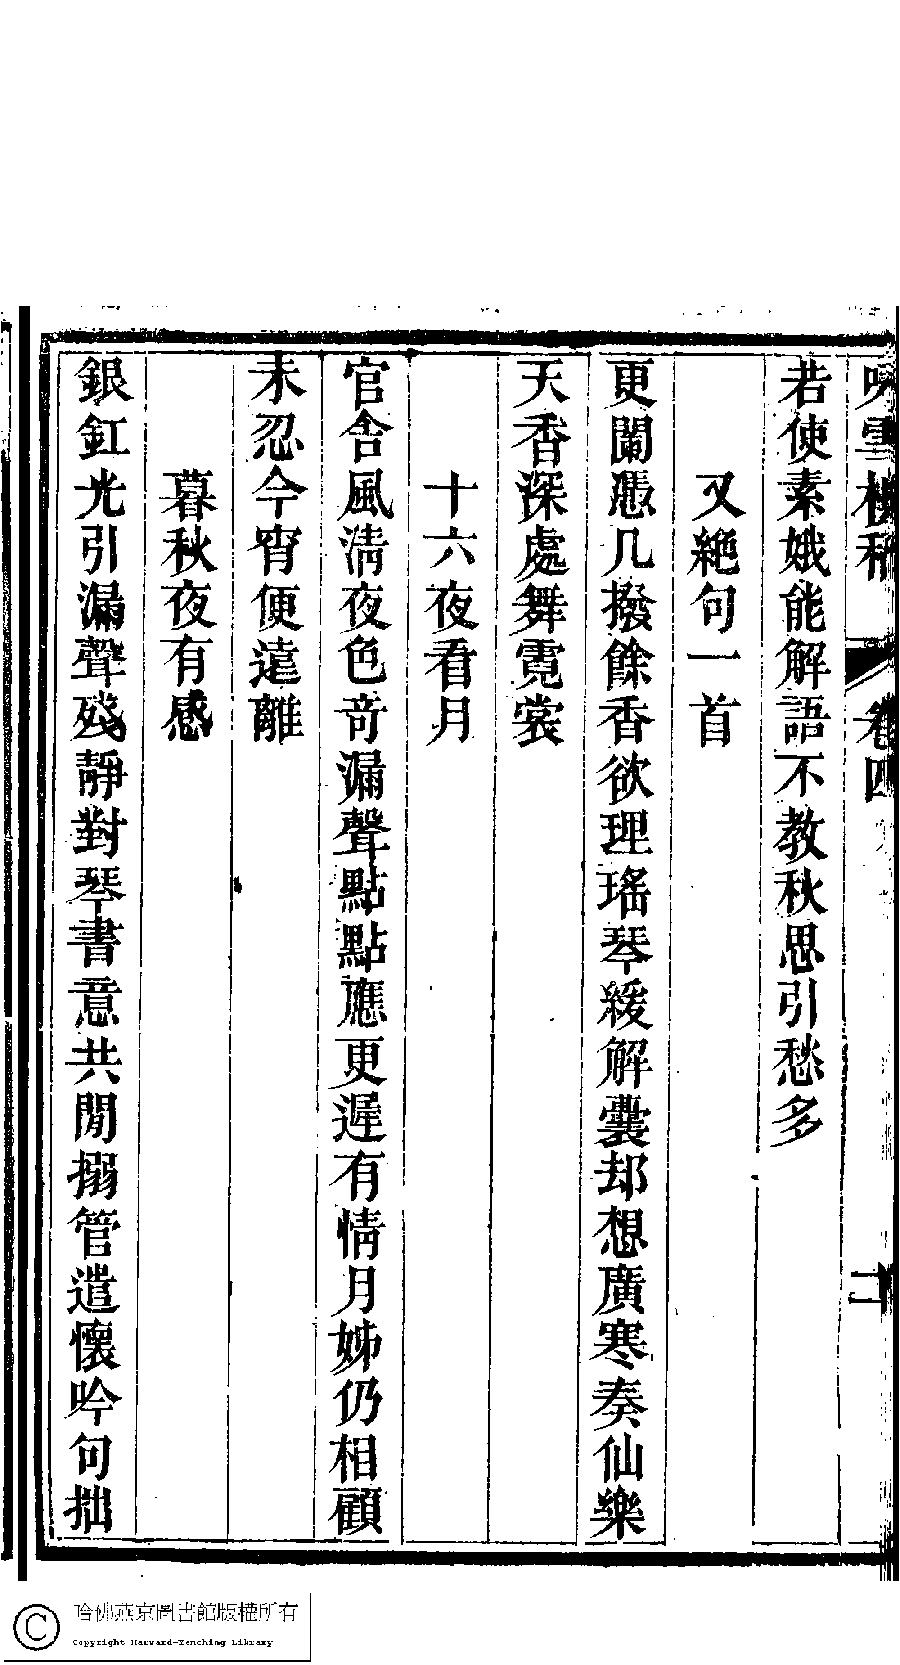 吟雪樓稿 卷四 二
若使素娥能解語不教秋思引愁多
又絶句一首
更闌憑几撥餘香欲理瑤琴緩解囊却想廣寒奏仙樂
天香深處舞霓裳
十六夜看月
官舍風淸夜色奇漏聲點點應更遲有情月姊仍相顧
未忍今宵便遠離
暮秋夜有感
銀釭光引漏聲殘靜對琴書意共閒搦管遣懷吟句拙
哈佛燕京圖書館版權所有
Copyright Harvard-Yenching Library